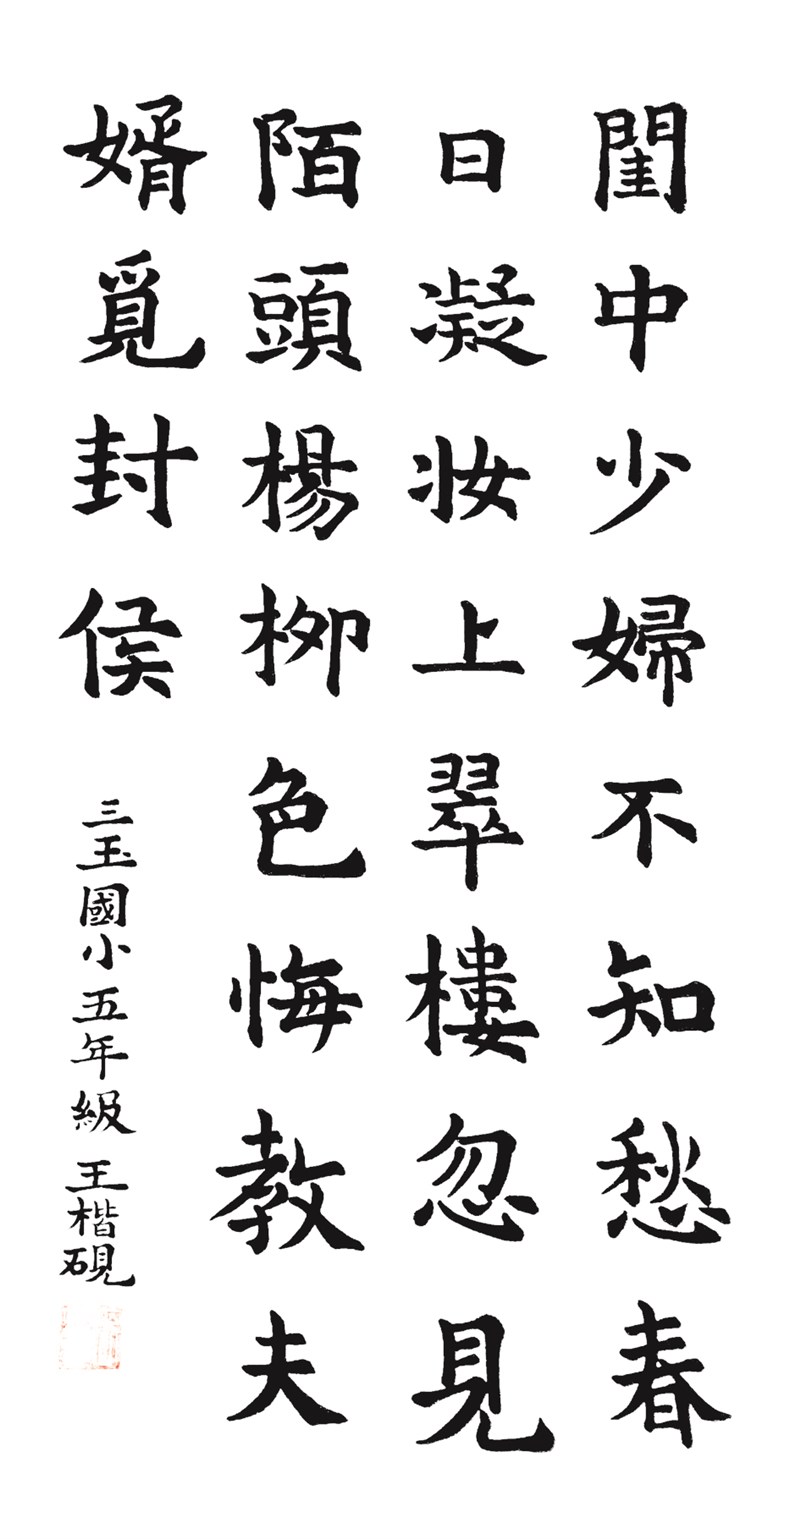 閨中少婦不知愁春
日凝妝上翠樓忽見
陌頭楊柳色悔教夫
婿覓封侯
三玉國小五年級 王楷硯